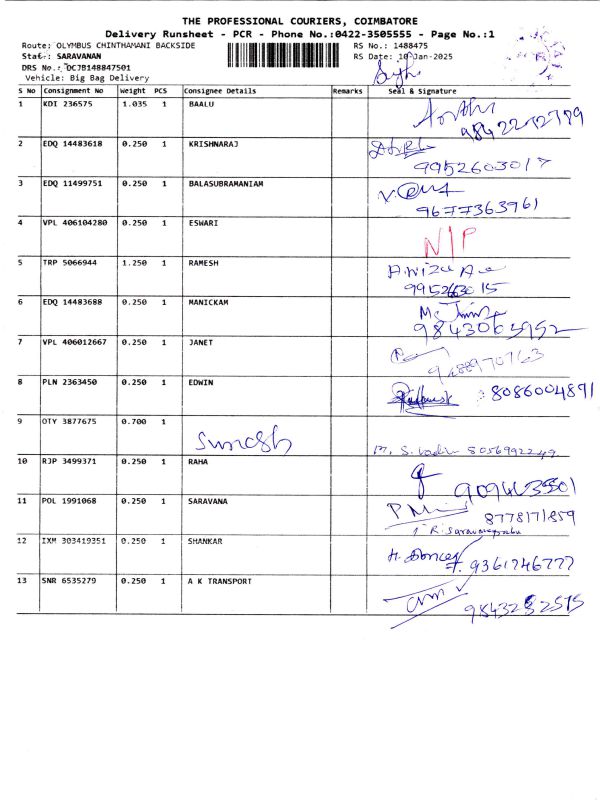 THE PROFESSIONAL COURIERS, COIMBATORE
Delivery Runsheet - PCR - Phone No.:0422-3505555 - Page No.:1
Route: OLYMBUS CHINTHAMANI BACKSIDE RS No.: 1488475
Staff: SARAVANAN RS Date: 10-Jan-2025
DRS No.: DCJB148847501
Vehicle: Big Bag Delivery
S No Consignment No Weight PCS Consignee Details Remarks Seal & Signature
1 KDI 236575 1.035 1 BAALU
2 EDQ 14483618 0.250 1 KRISHNARAJ
9952603017
3 EDQ 11499751 0.250 1 BALASUBRAMANIAM
9677363961
4 VPL 406104280 0.250 1 ESWARI
N/P
5 TRP 5066944 1.250 1 RAMESH
6 EDQ 14483688 0.250 1 MANICKAM
7 VPL 406012667 0.250 1 JANET
8 PLN 2363450 0.250 1 EDWIN 8086004891
9 OTY 3877675 0.700 1
8056992249
10 RJP 3499371 0.250 1 RAHA
11 POL 1991068 0.250 1 SARAVANA
8778171859
12 IXM 303419351 0.250 1 SHANKAR
9361746777
13 SNR 6535279 0.250 1 A K TRANSPORT